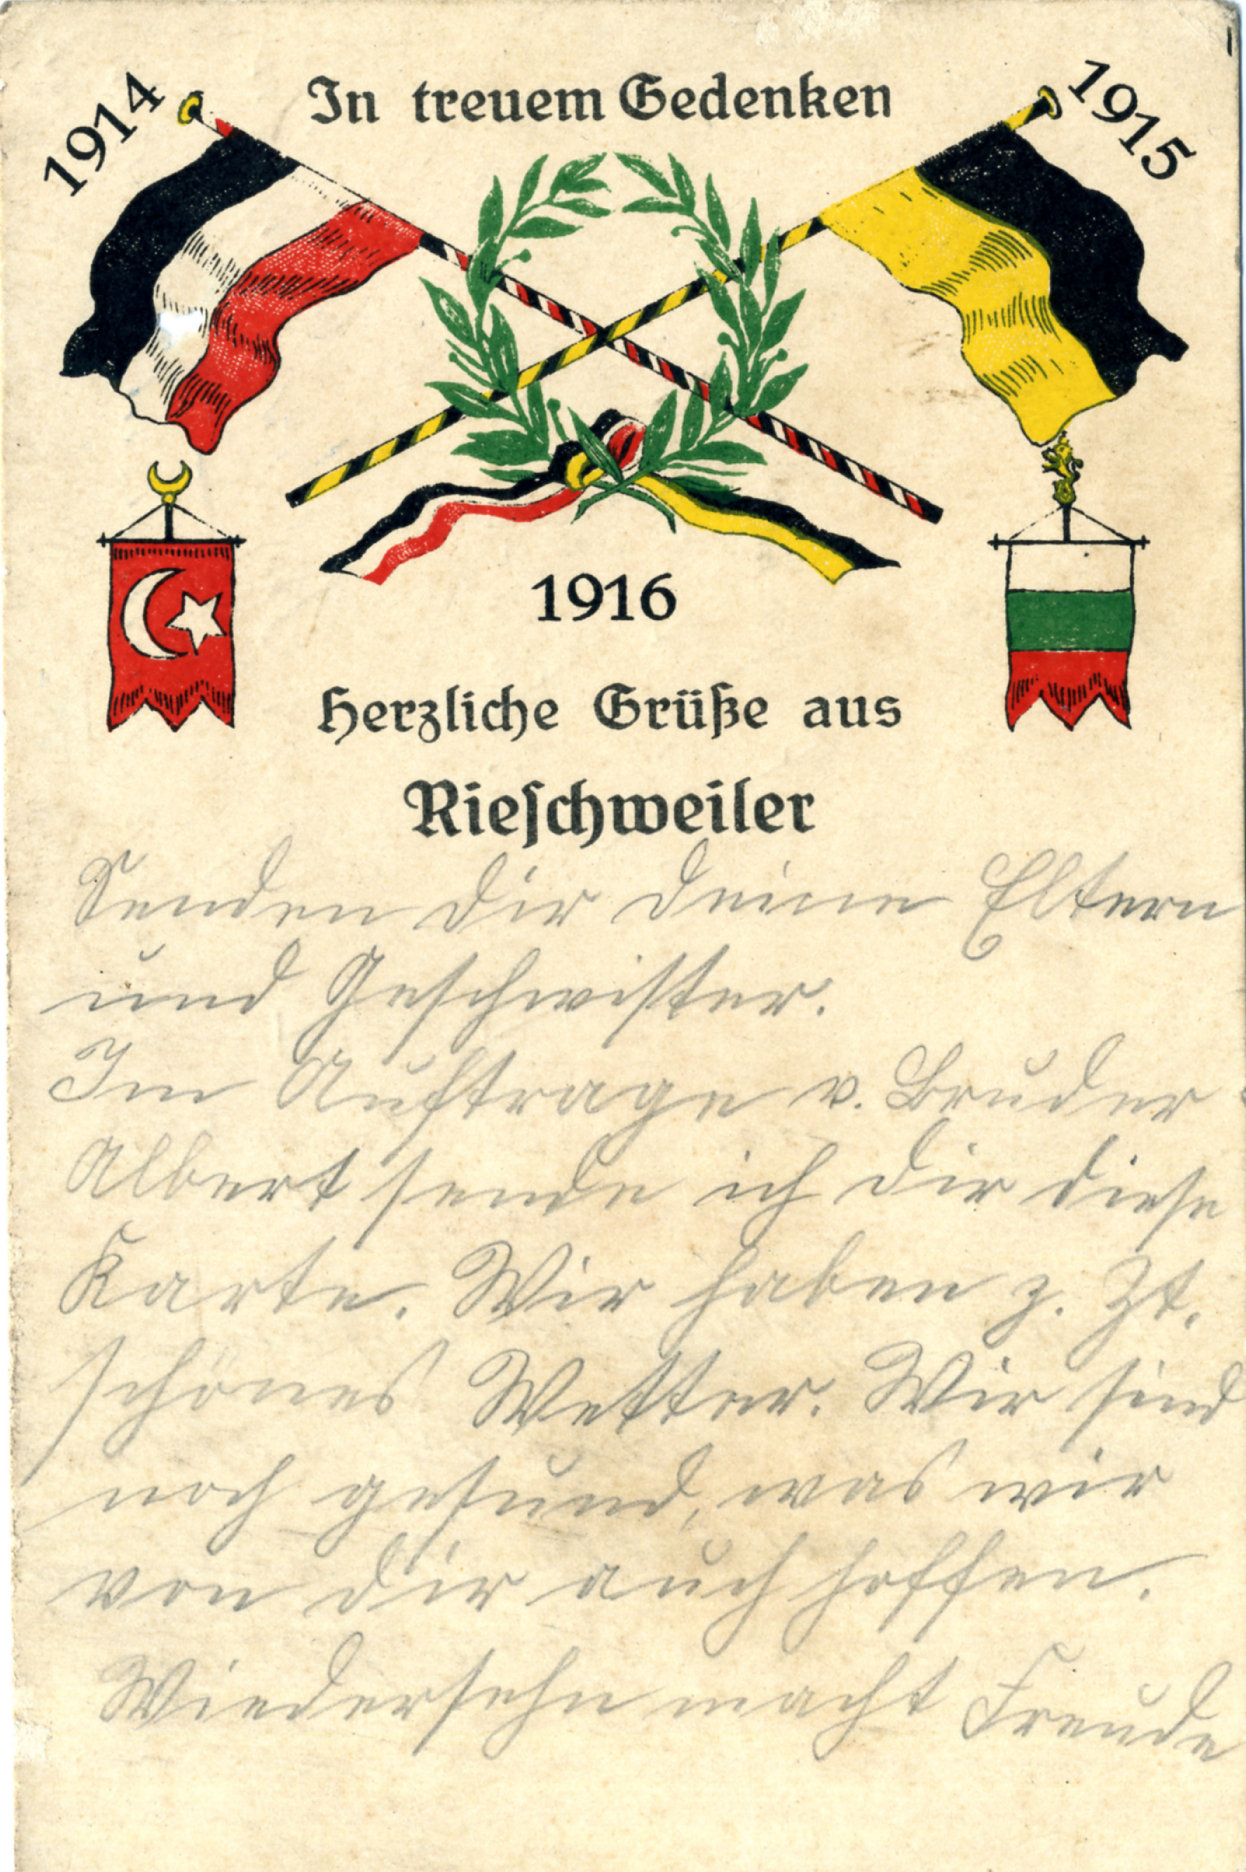 1914
In treuem Gedenken
1915
1916
Herzliche Grüße aus
Rieschweiler
Senden dir deine Eltern
und Geschwister.
Im Auftrage v. Bruder
Albert sende ich dir diese
Karte. Wir haben z. Zt.
schönes Wetter. Wir sind
noch gesund, was wir
von dir auch hoffen.
Wiedersehn macht Freude